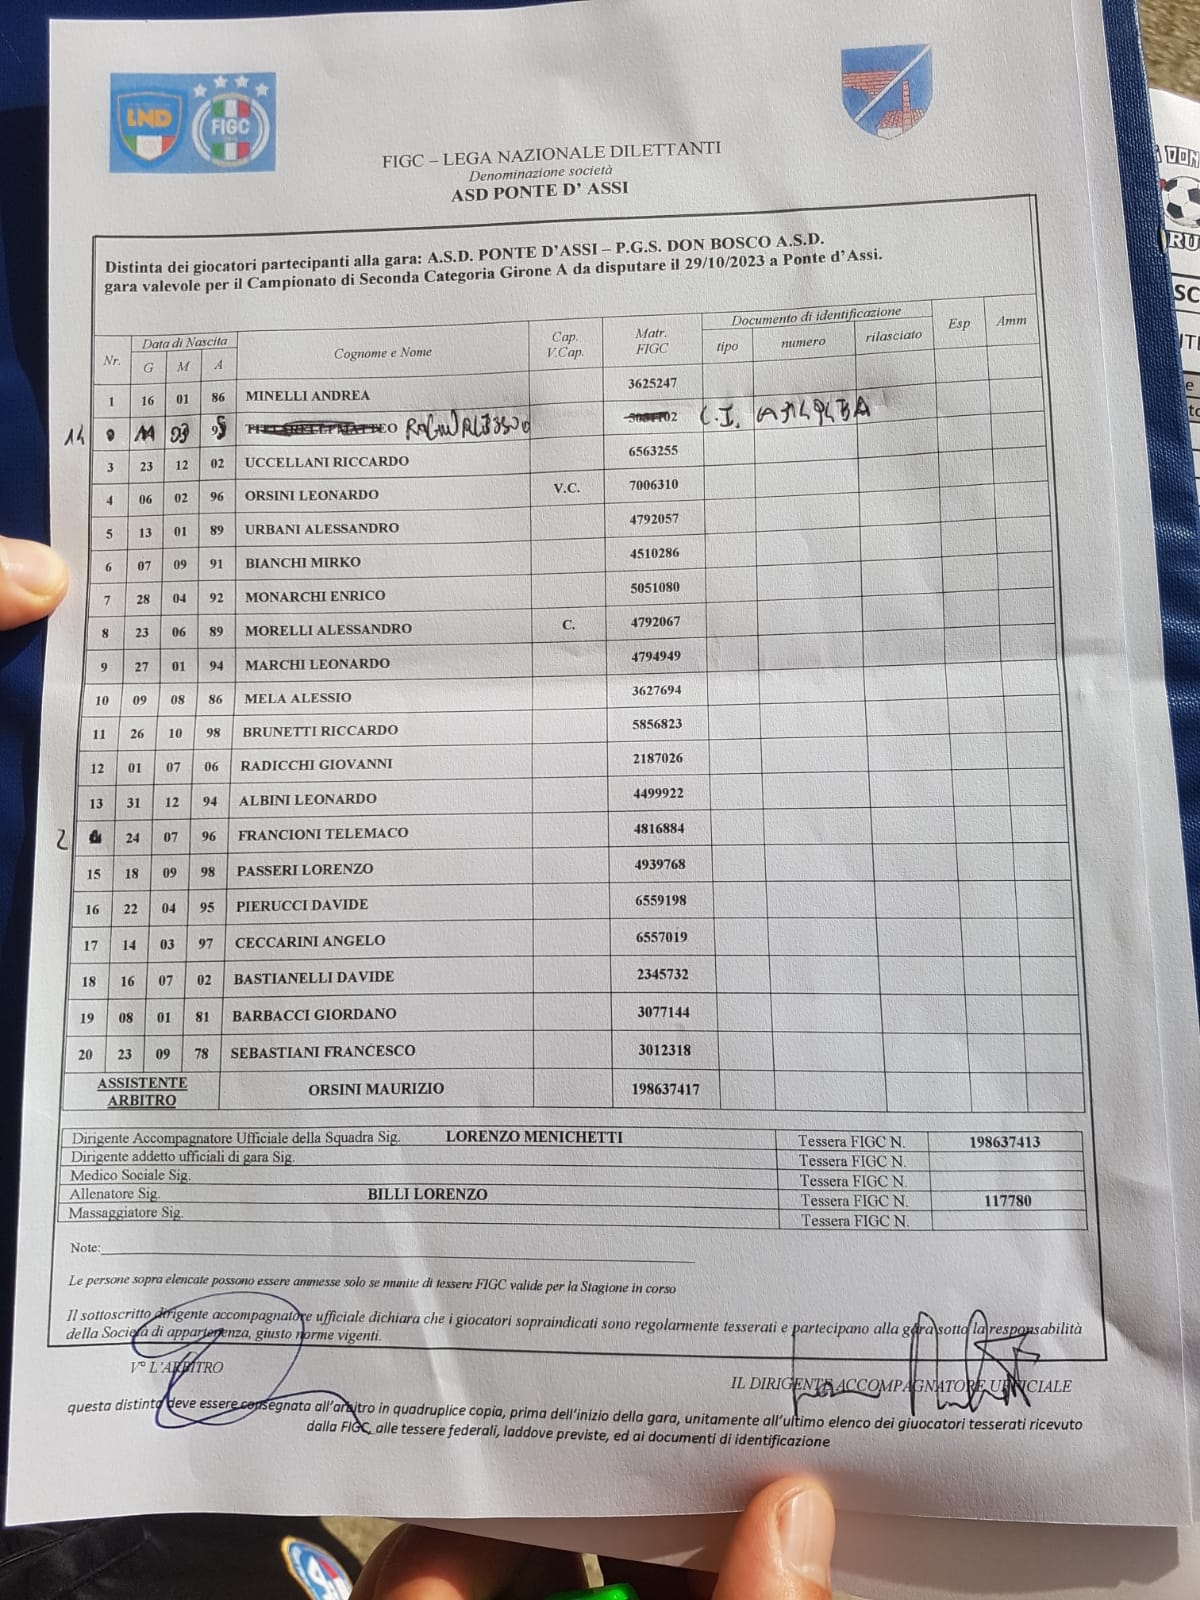 LND
FIGC
FIGC – LEGA NAZIONALE DILETTANTI
Denominazione società
ASD PONTE D' ASSI
Distinta dei giocatori partecipanti alla gara: A.S.D. PONTE D'ASSI – P.G.S. DON BOSCO A.S.D.
gara valevole per il Campionato di Seconda Categoria Girone A da disputare il 29/10/2023 a Ponte d'Assi.
Nr. Data di Nascita G M A Cognome e Nome Cap. V.Cap. Matr. FIGC Documento di identificazione tipo numero rilasciato Esp Amm
1 16 01 86 MINELLI ANDREA 3625247
14 C.I.
3 23 12 02 UCCELLANI RICCARDO 6563255
4 06 02 96 ORSINI LEONARDO V.C. 7006310
5 13 01 89 URBANI ALESSANDRO 4792057
6 07 09 91 BIANCHI MIRKO 4510286
7 28 04 92 MONARCHI ENRICO 5051080
8 23 06 89 MORELLI ALESSANDRO C. 4792067
9 27 01 94 MARCHI LEONARDO 4794949
10 09 08 86 MELA ALESSIO 3627694
11 26 10 98 BRUNETTI RICCARDO 5856823
12 01 07 06 RADICCHI GIOVANNI 2187026
13 31 12 94 ALBINI LEONARDO 4499922
2 24 07 96 FRANCIONI TELEMACO 4816884
15 18 09 98 PASSERI LORENZO 4939768
16 22 04 95 PIERUCCI DAVIDE 6559198
17 14 03 97 CECCARINI ANGELO 6557019
18 16 07 02 BASTIANELLI DAVIDE 2345732
19 08 01 81 BARBACCI GIORDANO 3077144
20 23 09 78 SEBASTIANI FRANCESCO 3012318
ASSISTENTE ARBITRO ORSINI MAURIZIO 198637417
Dirigente Accompagnatore Ufficiale della Squadra Sig. LORENZO MENICHETTI Tessera FIGC N. 198637413
Dirigente addetto ufficiali di gara Sig. Tessera FIGC N.
Medico Sociale Sig. Tessera FIGC N.
Allenatore Sig. BILLI LORENZO Tessera FIGC N. 117780
Massaggiatore Sig. Tessera FIGC N.
Note:
Le persone sopra elencate possono essere ammesse solo se munite di tessere FIGC valide per la Stagione in corso
Il sottoscritto dirigente accompagnatore ufficiale dichiara che i giocatori sopraindicati sono regolarmente tesserati e partecipano alla gara sotto la responsabilità
della Società di appartenenza, giusto norme vigenti.
V° L'ARBITRO
IL DIRIGENTE ACCOMPAGNATORE UFFICIALE
questa distinta deve essere consegnata all'arbitro in quadruplice copia, prima dell'inizio della gara, unitamente all'ultimo elenco dei giuocatori tesserati ricevuto
dalla FIGC, alle tessere federali, laddove previste, ed ai documenti di identificazione